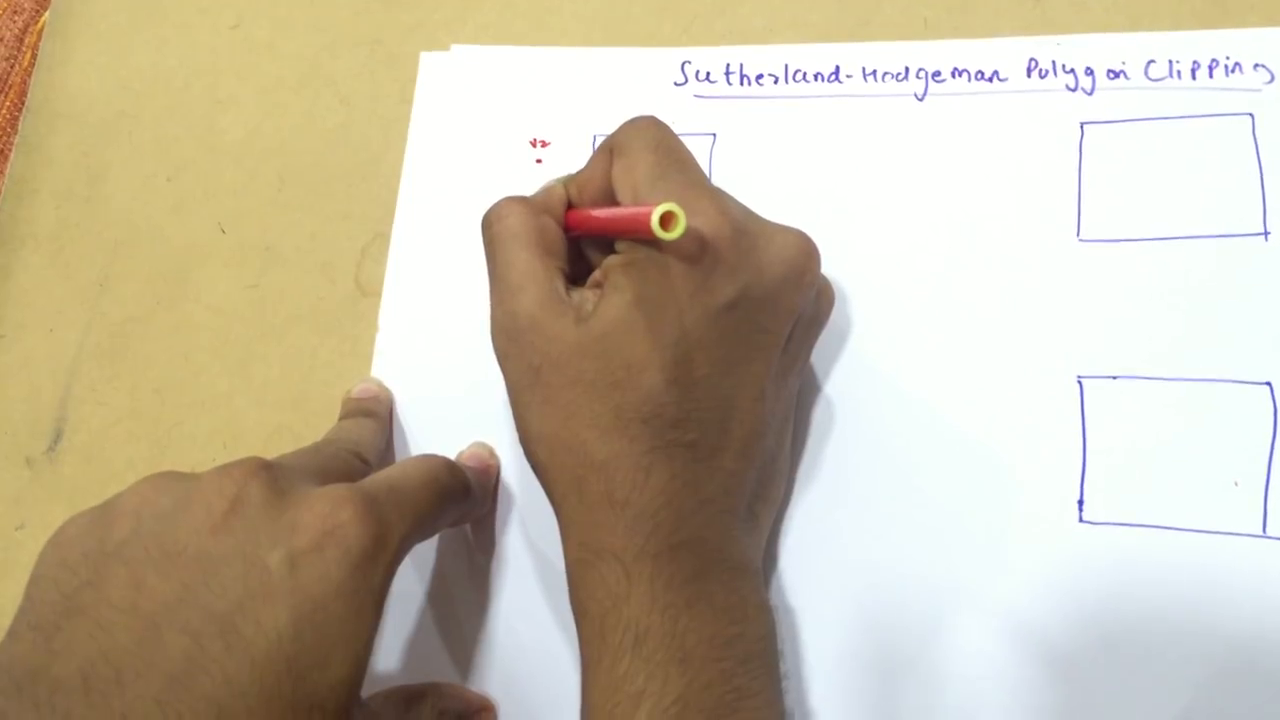 Sutherland-Hodgeman Polygon Clipping
V2